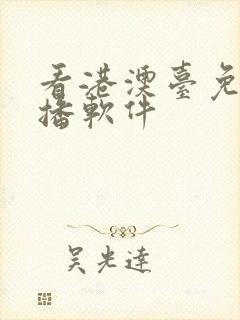 看港澳臺免
播軟件
吴光達